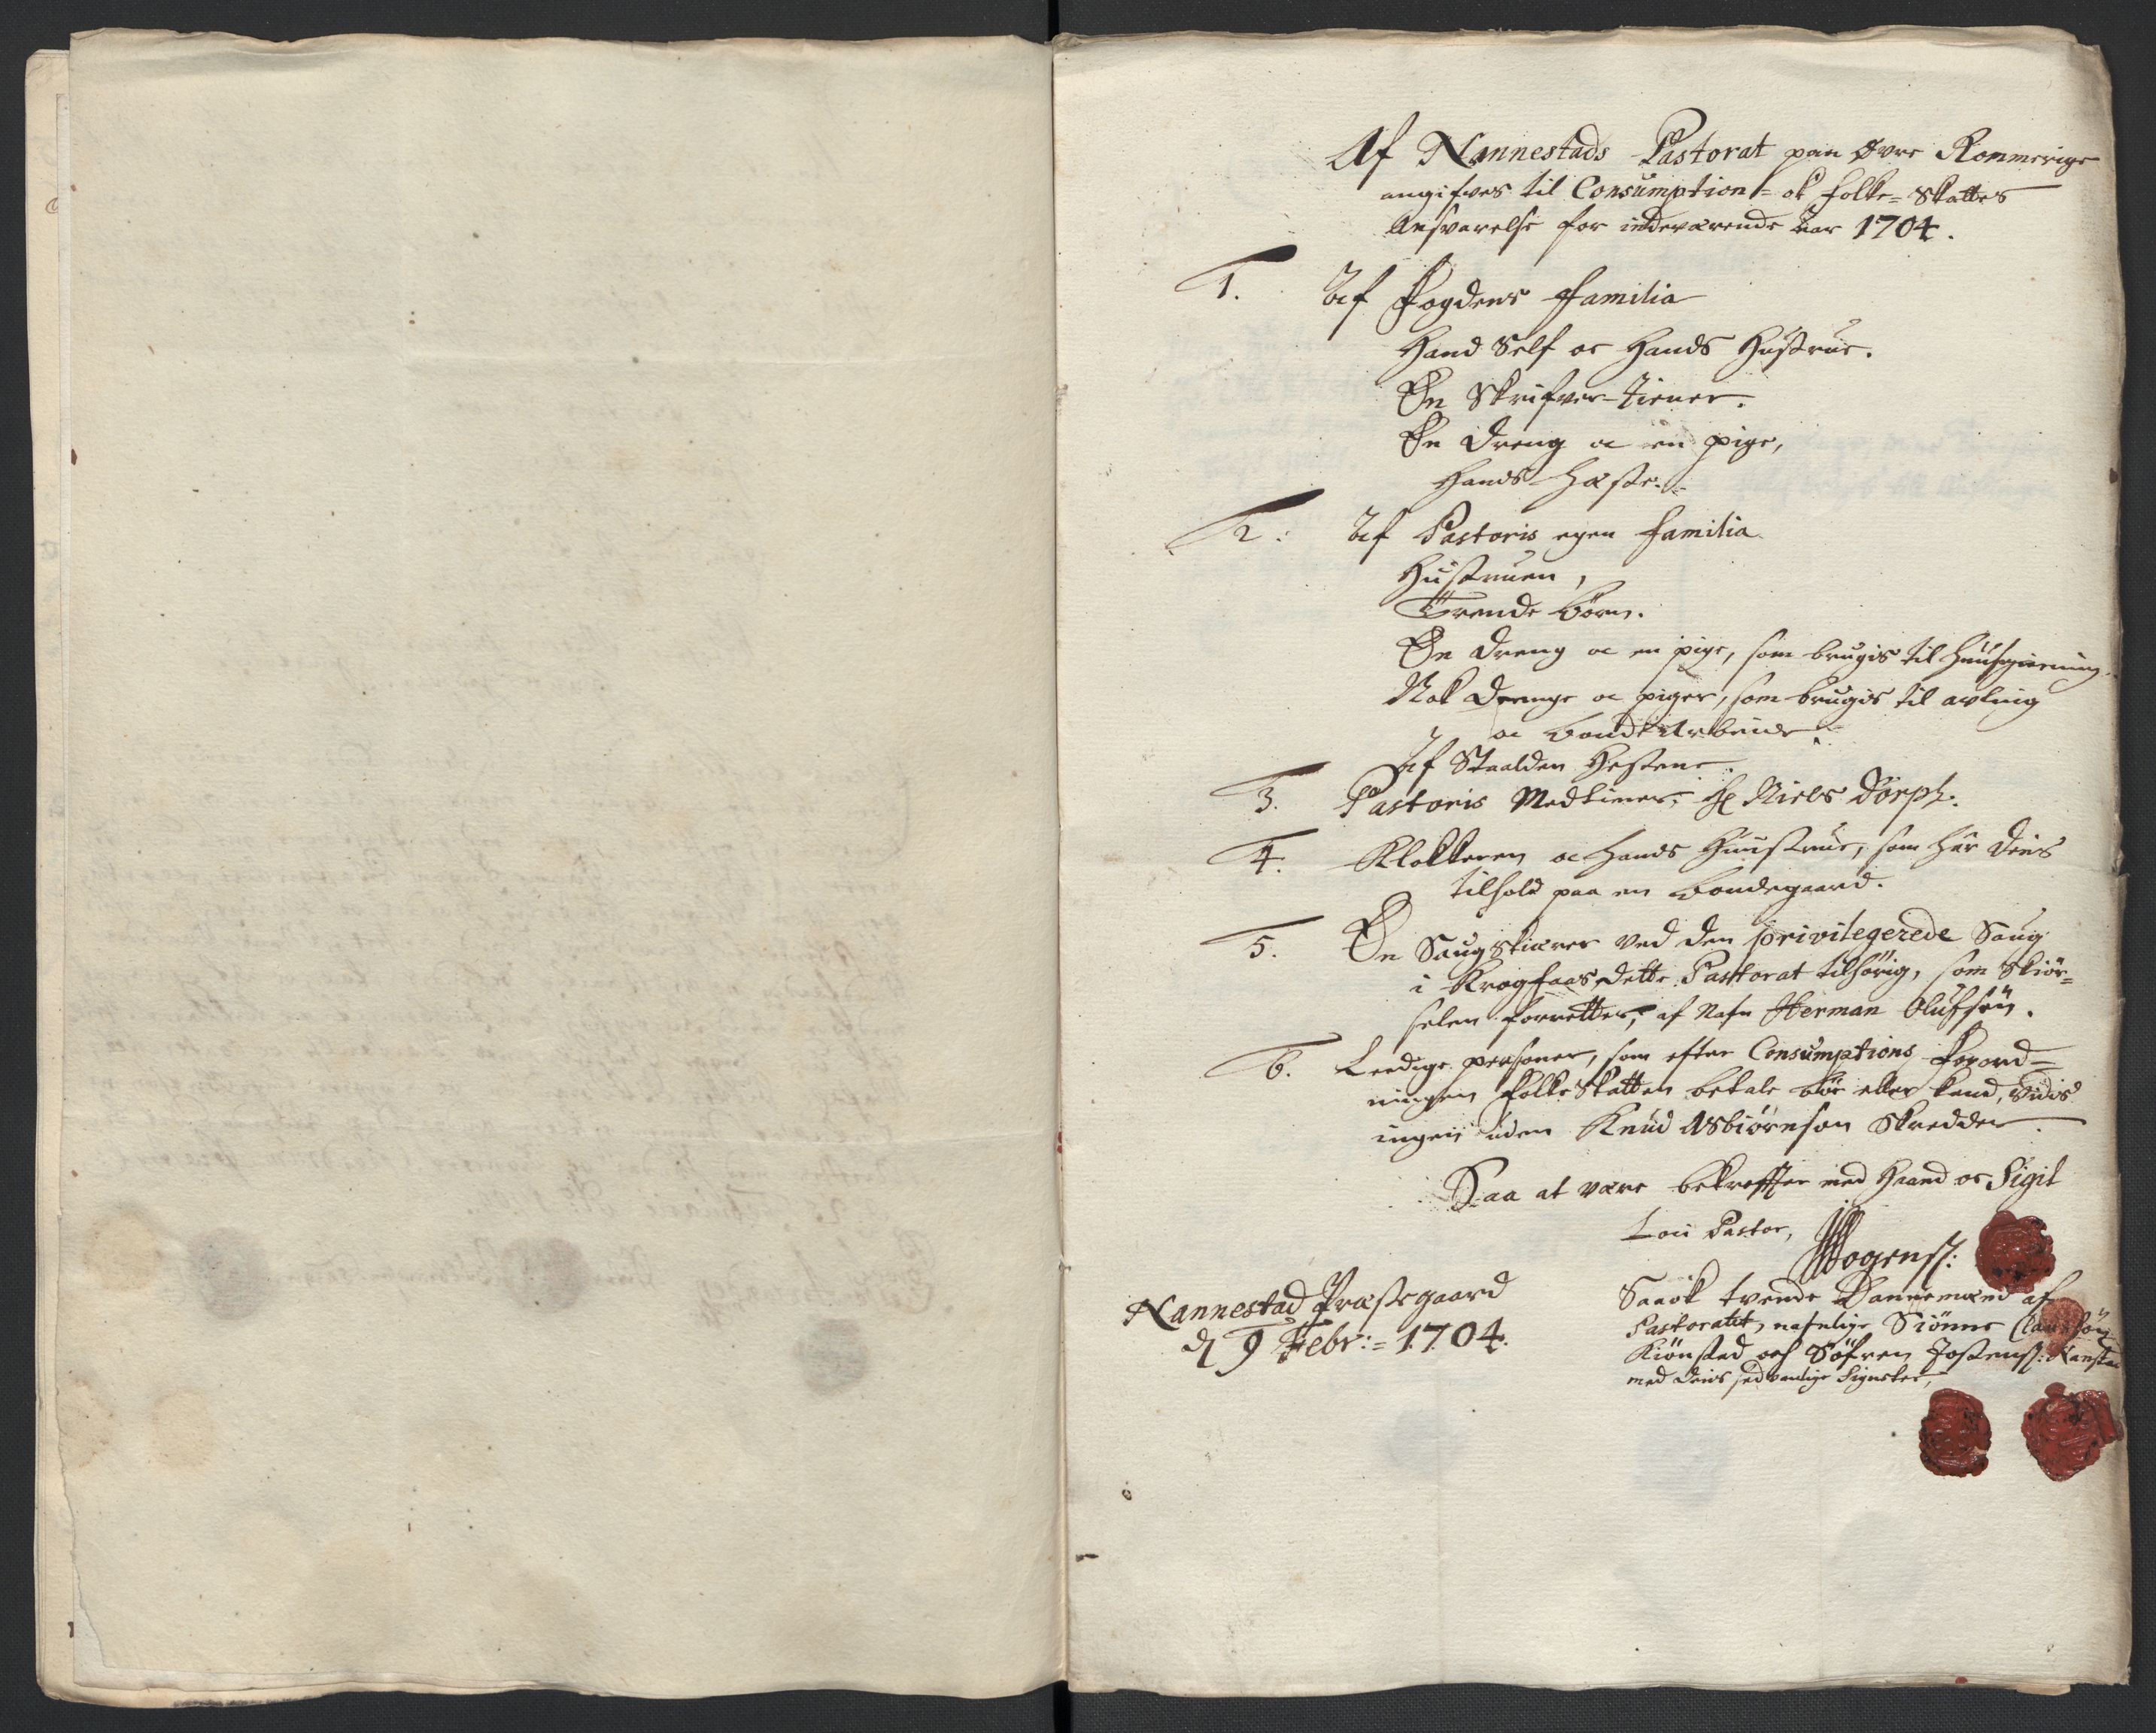 Af Nannestads Pastorat paa Øvre Rommerige
angifves til Consumption- ok Folke-Skattes
Ansvarelse for indeværende Aar 1704.
1. Af Fogdens Familia
Hand Self oc Hands Hustrue.
En Skrifver-tiener.
En Dreng oc en pige,
Hands Hæste.
2: Af Pastoris egen Familia
Hustruen,
Trende Børn.
En Dreng oc en pige, som brugis til Huusgierning
Nok Drenge oc piger, som brugis til avling
oc Bonde Arbeide.
Af Stalden Hestene.
3. Pastoris Medtiener, Hr Niels Dorph.
4. Klokkeren oc Hands Huustrue, som har deris
tilhold paa en Bondegaard.
5. En Saugskiærer ved den privilegerede Saug
i Krogfaas dette Pastorat tilhørig, som Skiør-
selen forretter, af Nafn Herman Olufsøn.
6. Leedige personer, som efter Consumptions Forord-
ningen Folke Skatten betale bør eller kand, vidis
ingen uden Knud Asbiørnson Skredder.
Saa at være bekræffter med Haand oc Sigil
Loci Pastor,
Mogenss:
Nannestad Præstegaard
d 9 Febr: 1704.
Saa ok tvende Dannemænd af
Pastoratet, nafnlige Siønne Clausøn
Kiønstad och Söfren Jostenss:
med deris sedvanlige Signeter,